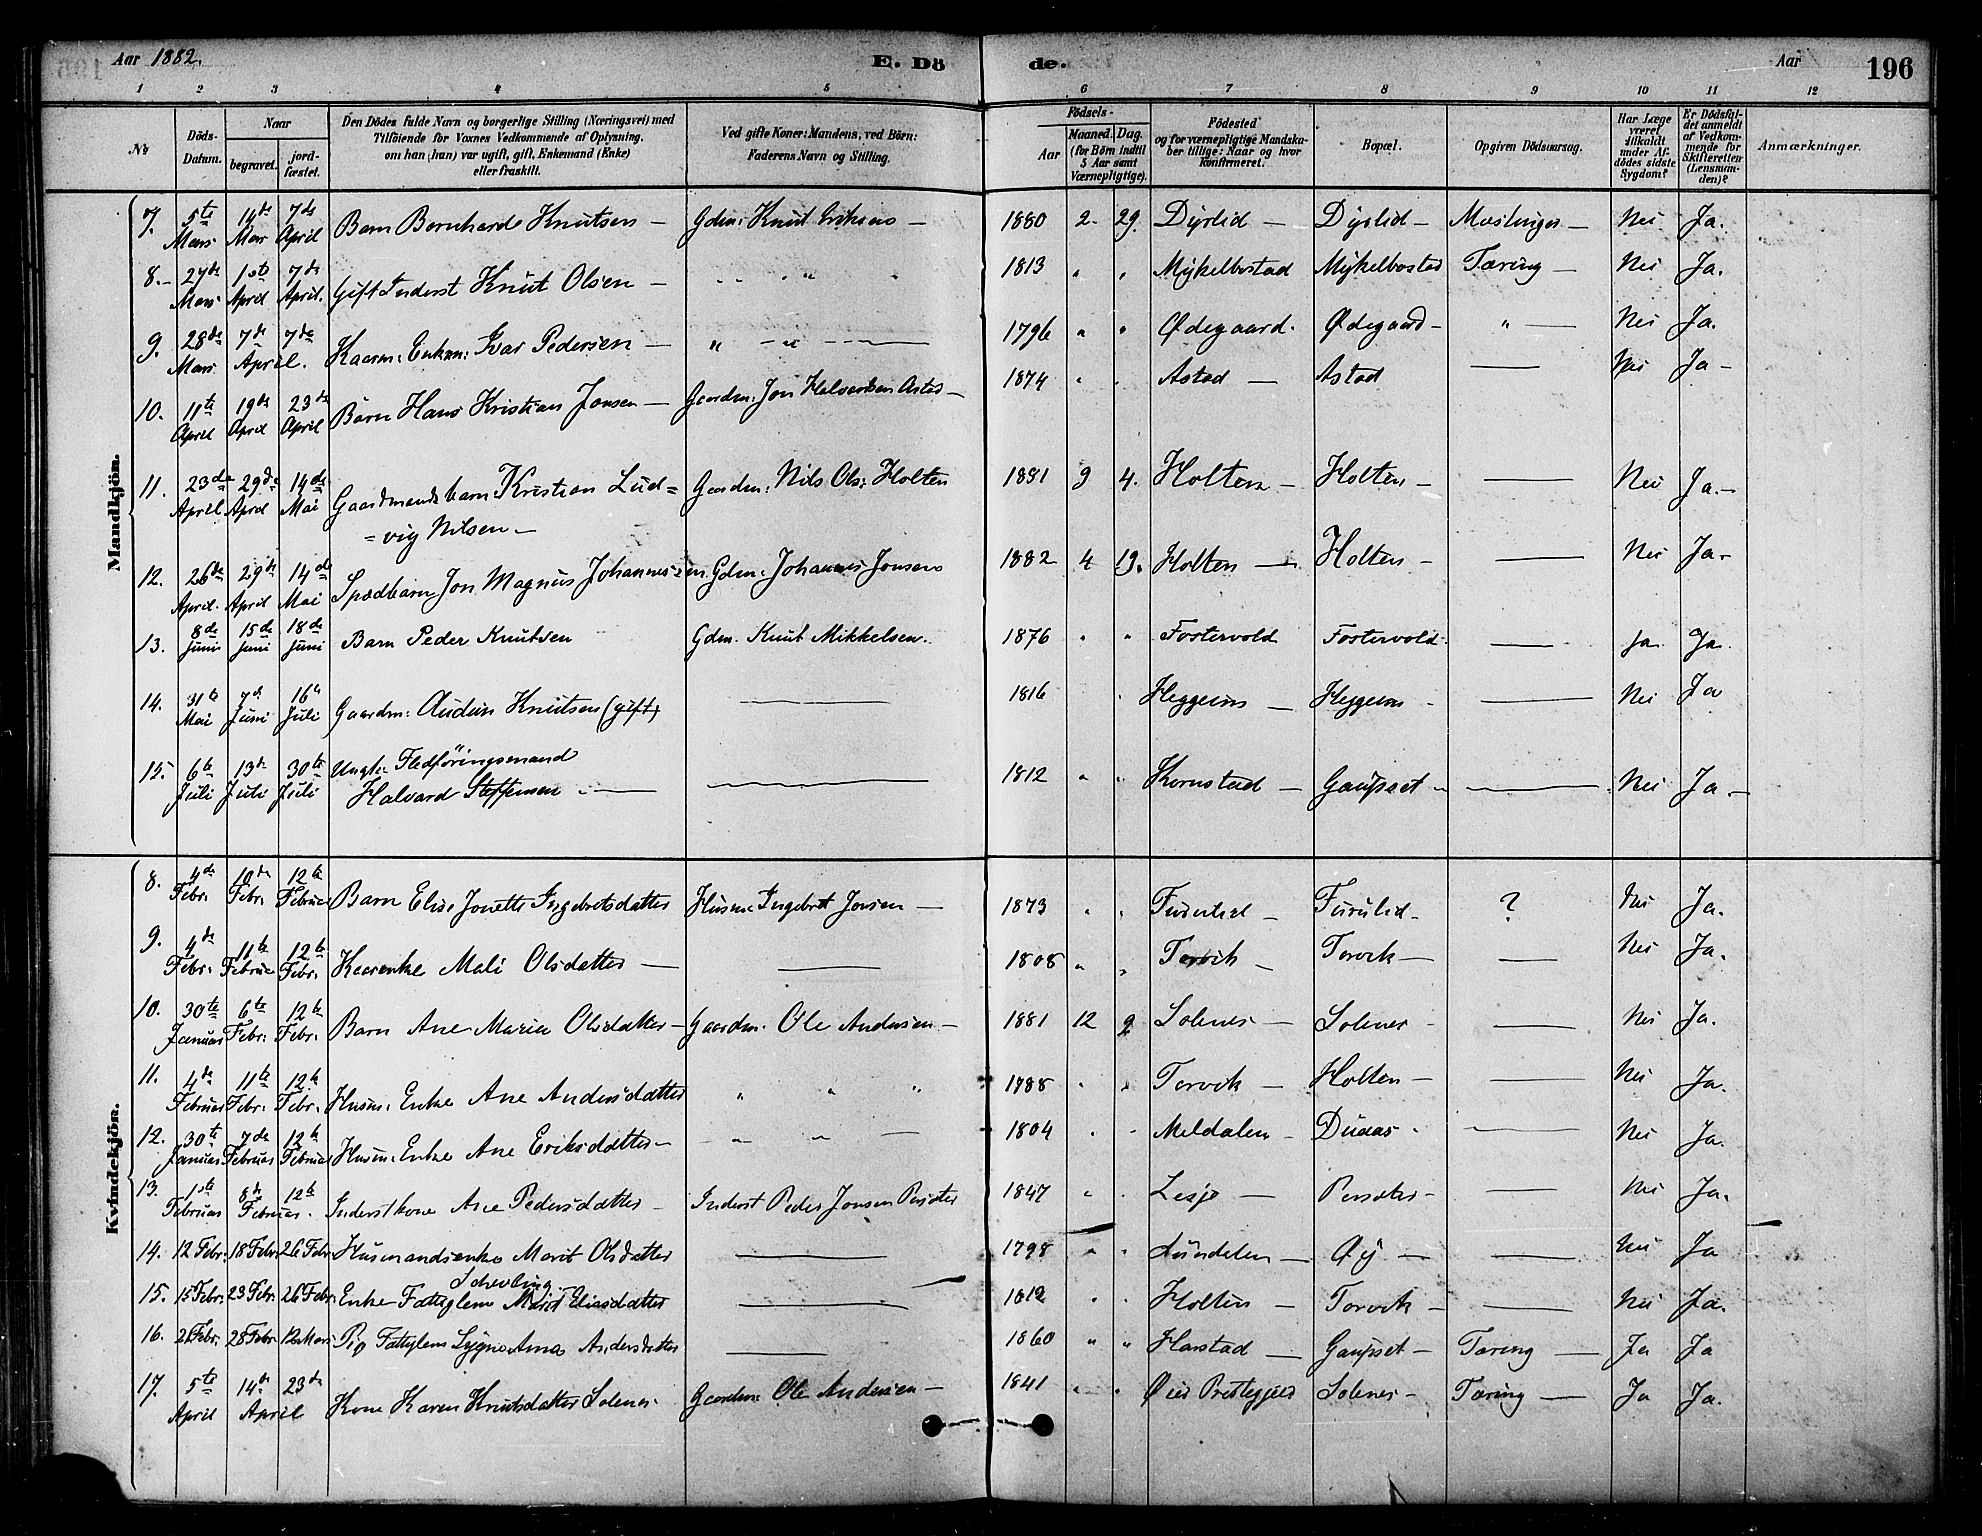 Aar 1882. E. Dö de. Aar 196
1 2 3 4 5 6 7 8 9 10 11 12
No. Döds-Datum. Naar begravet. jordfæstet. Den Dödes fulde Navn og borgerlige Stilling (Næringsvei) med Tilföiende for Voxnes Vedkommende af Oplysning, om han (hun) var ugift, gift, Enkemand (Enke) eller fraskilt. Ved gifte Koner: Mandens, ved Börn: Faderens Navn og Stilling. Födsels- Aar Maaned. Dag. (for Börn indtil 5 Aar samt Værnepligtige). Födested og for værnepligtige Mandskaber tillige: Naar og hvor Konfirmeret. Bopæl. Opgiven Dödsaarsag. Har Læge været tilkaldt under Afdödes sidste Sygdom? Er Dödsfaldet anmeldt af Vedkommende for Skifteretten (Lensmanden)? Anmærkninger.
Mandkjön.
7. 5te Mars 14de Mars 7de April Barn Bernhard Knutsen — Gdm: Knut Eriksens — 1880 2 29. Dyrlid — Dyrlid — Mæslinger — Nei Ja.
8. 27de Mars 1ste April 7de April. Gift Inderst Knut Olsen — 1813 " " Mykelbostad Mykelbostad Tæring — Nei Ja.
9. 28de Mars 7de 7de April. Kaarm: Enkm: Ivar Pedersen — " — " — 1796 " " Ødegaard. Ødegaard — " — Nei Ja.
10. 11te April 19de April 23de April Barn Hans Kristian Jonsen — Gaardm: Jon Halvorsen Astad — 1874 " " Astad — Astad — Nei Ja —
11. 23de April 29de April 14de Mai Gaardmands barn Kristian Lud=
=vig Nilsen — Gaardm: Nils Ols: Holten 1881 9 4. Holten — Holten — — Nei Ja. —
12. 26de April. 29de April 14de Mai Spædbarn Jon Magnus Johannessen. Gdm: Johannes Jonsens 1882 4 13. Holten — Holten — — Nei Ja —
13. 8de Juni 15de Juni 18de Juni Barn Peder Knutsen Gdm. Knut Mikkelsen. 1876 " " Fostervold Fostervold — Ja. Ja.
14. 31te Mai 7de Juni 16de Juli Gaardm: Audun Knutsen (gift) — 1816 " Heggeim — Heggeim — — Nei Ja
15. 6te Juli 13de Juli 30te Juli Ungk: Fledföringsmand
Halvard Steffensen — — 1812 " " Kornstad — Gaupset — — Nei Ja —
Kvindekjön.
8. 4de Febr. 10de Febr. 12te Februar Barn Elise Jonette Ingebretsdatter Husm: Ingebret Jonsen — 1873 " " Furulid — Furulid — ? Nei Ja.
9. 4de Febr. 11te Februar 12te Febr. Kaarenke Mali Olsdatter — — 1808 " " Torvik — Torvik — — Nei Ja.
10. 30te Januar 6te Febr. 12te Febr. Barn Ane Maria Olsdatter — Gaardm. Ole Andersen — 1881 12 9 Solenes — Solenes — — Nei Ja.
11. 4de Februar 11te Febr. 12te Febr. Husm: Enke Ane Andersdatter " " " 1788 " " Torvik — Holten — — Nei Ja.
12. 30te Januar 7de Februar 12te Februar Husm: Enke Ane Eriksdatter — — " " — 1804 " " Meldalen — Duaas — — Nei Ja.
13. 1ste Februar 8de 12te Februar. Inderstkone Ane Pedersdatter — Inderst Peder Jonsen 1847 " " Lesje — — Nei Ja.
14. 12 Febr. 18 Febr. 26 Febr. Husmandsenke Marit Olsdatter — 1798 " " Sundalen — Øy — — Nei Ja
15. 15 Febr. 23 Febr. 26 Febr. Enke Fattiglem Marit Eliasdatter — 1812 " Holten — Torvik — — Nei Ja.
16. 21 Febr. 28 Febr. 12 Mars Pig Fattiglem Ane Andersdatter — 1860 " " Harstad — Gaupset — Tæring — Ja Ja
17. 5te April 14de 23de April Kone Karen Knutsdatter Solenes. Gaardm: Ole Andersen — 1841 " " Øies Prestegjeld Solenes — Tæring — Ja Ja.